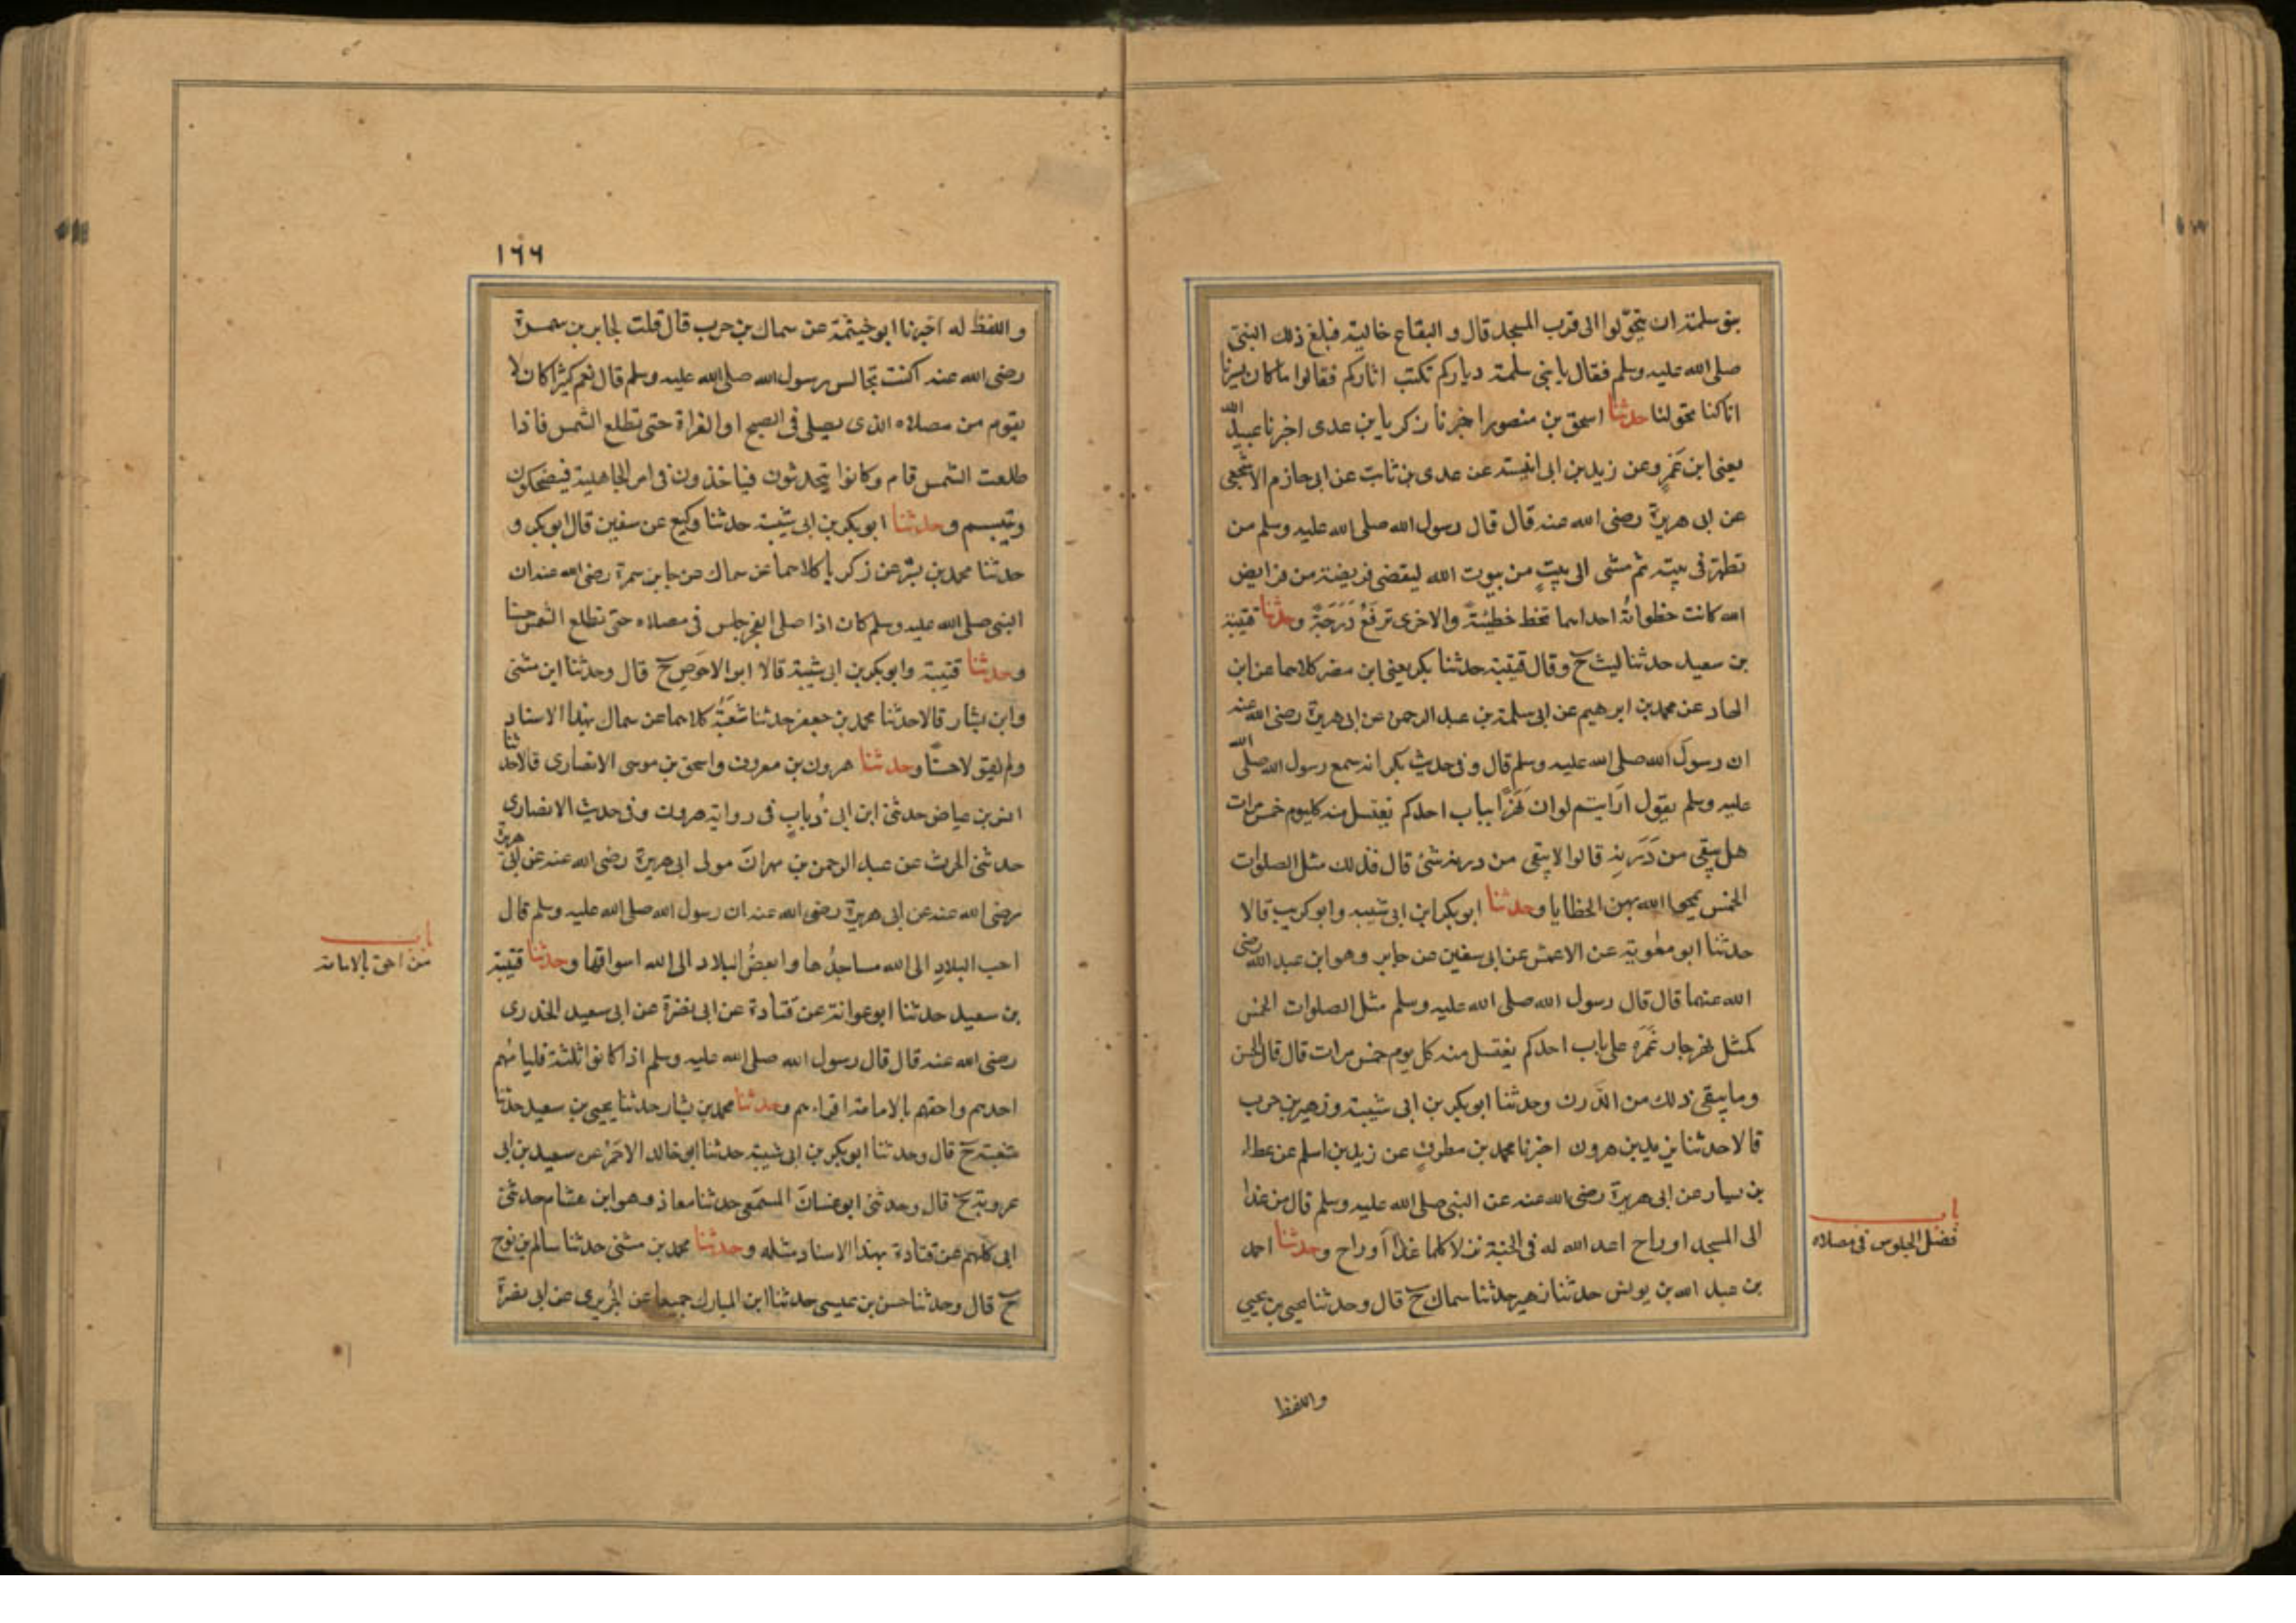 بنو سلمة ان يتحوّلوا الى قرب المسجد قال و البقاع خالية فبلغ ذلك النبي
صلى الله عليه وسلم فقال يا بني سلمة دياركم تكتب اثاركم فقالوا ما كان يسرنا
انا كنا تحولنا حدثنا اسحق بن منصور اخبرنا زكريا بن عدى اخبرنا عبيد الله
يعنى ابن عَمرٍو عن زيد بن ابى انيسة عن عدى بن ثابت عن ابى حازم الاشجعى
عن ابى هريرة رضى الله عنه قال قال رسول الله صلى الله عليه وسلم من
تطهّر فى بيته ثم مشى الى بيتٍ من بيوت الله ليقضى فريضة من فرايض
الله كانت خطواتُه احداهما تحط خطيئةً والاخرى ترفَعُ دَرَجَةً وحدثنا قتيبة
بن سعيد حدثنا ليث ح وقال قتيبة حدثنا بكر يعنى ابن مضر كلاهما عن ابن
الهاد عن محمد بن ابرهيم عن ابى سلمة بن عبد الرحمن عن ابى هريرة رضى الله عنه
ان رسول الله صلى الله عليه وسلم قال و فى حديث بكر انه سمع رسول الله صلى الله
عليه وسلم يقول ارَايتم لو ان نَهَرًا بباب احدكم يغتسل منه كل يوم خمس مرات
هل يبقى من دَرَنِه قالوا لا يبقى من درنه شئ قال فذلك مثل الصلوات
الخمس يمحوا الله بهن الخطايا وحدثنا ابو بكر ابن ابى شيبه وابو كريب قالا
حدثنا ابو معوية عن الاعمش عن ابى سفين عن جابر وهو ابن عبد الله رضى
الله عنهما قال قال رسول الله صلى الله عليه وسلم مثل الصلوات الخمس
كمثل نهر جار غَمْرٍ على باب احدكم يغتسل منه كل يوم خمس مرات قال قال الحسن
وما يبقى ذلك من الدَّرن وحدثنا ابو بكر بن ابى شيبة و زهير بن حرب
قالا حدثنا يزيد بن هرون اخبرنا محمد بن مطرفٍ عن زيد بن اسلم عن عطاء
بن يسار عن ابى هريرة رضى الله عنه عن النبى صلى الله عليه وسلم قال من غدا
الى المسجد او راح اعد الله له فى الجنة نزلا كلما غدا او راح وحدثنا احمد
بن عبد الله بن يونس حدثنا زهير حدثنا سماك ح قال وحدثنا يحيى بن يحيى
باب
فضل الجلوس فى مصلاه
واللفظ
١٦٦
و اللفظ له اخبرنا ابو خيثمة عن سماك بن حرب قال قلت لجابر بن سمرة
رضى الله عنه اكنت تجالس رسول الله صلى الله عليه وسلم قال نعم كثيرا كان لا
يقوم من مصلاه الذى يصلى فى الصبح او الغداة حتى تطلع الشمس فاذا
طلعت الشمس قام وكانوا يتحدثون فياخذون فى امر الجاهلية فيضحكون
ويتبسم وحدثنا ابو بكر بن ابى شيبة حدثنا وكيع عن سفين قال ابو بكر و
حدثنا محمد بن بشر عن زكريا كلاهما عن سماك عن جابر بن سمرة رضى الله عنه ان
النبى صلى الله عليه وسلم كان اذا صلى الفجر جلس فى مصلاه حتى تطلع الشمس حسنا
وحدثنا قتيبة وابو بكر بن ابى شيبة قالا ابو الاحَوصِ ح قال وحدثنا ابن مثنى
وابن بشار قالا حدثنا محمد بن جعفر حدثنا شعبَةُ كلاهما عن سماك بهذا الاسناد
ولم يقولا حسنًا وحدثنا هرون بن معروف واسحق بن موسى الانصارى قالا حدثنا
انس بن عياض حدثنى ابن ابى ذُبابٍ فى رواية هرون وفى حديث الانصارى
حدثنى الحرث عن عبد الرحمن بن مهران مولى ابى هريرة رضى الله عنه عن ابى هريرة
رضى الله عنه عن ابى هريرة رضى الله عنه ان رسول الله صلى الله عليه وسلم قال
احب البلادِ الى الله مساجدُها وابغضُ البلاد الى الله اسواقها وحدثنا قتيبة
بن سعيد حدثنا ابو عوانة عن قتادة عن ابى نضرة عن ابى سعيد الخدرى
رضى الله عنه قال قال رسول الله صلى الله عليه وسلم اذا كانوا ثلثة فليامُهم
احدهم واحقهم بالامامة اقراءهم وحدثنا محمد بن بشار حدثنا يحيى بن سعيد حدثنا
شعبة ح قال وحدثنا ابو بكر بن ابى شيبة حدثنا ابو خالد الاحَمرُ عن سعيد بن ابى
عروبة ح قال وحدثنى ابو غسان المسْمَعى حدثنا معاذ وهو ابن هشام حدثنى
ابى كلهم عن قتادة بهذا الاسناد مثله وحدثنا محمد بن مثنى حدثنا سالم بن نوح
ح قال وحدثنا حسن بن عيسى حدثنا ابن المبارك جميعا عن الجُريرى عن ابى نضرة
باب
من احق بالامامة